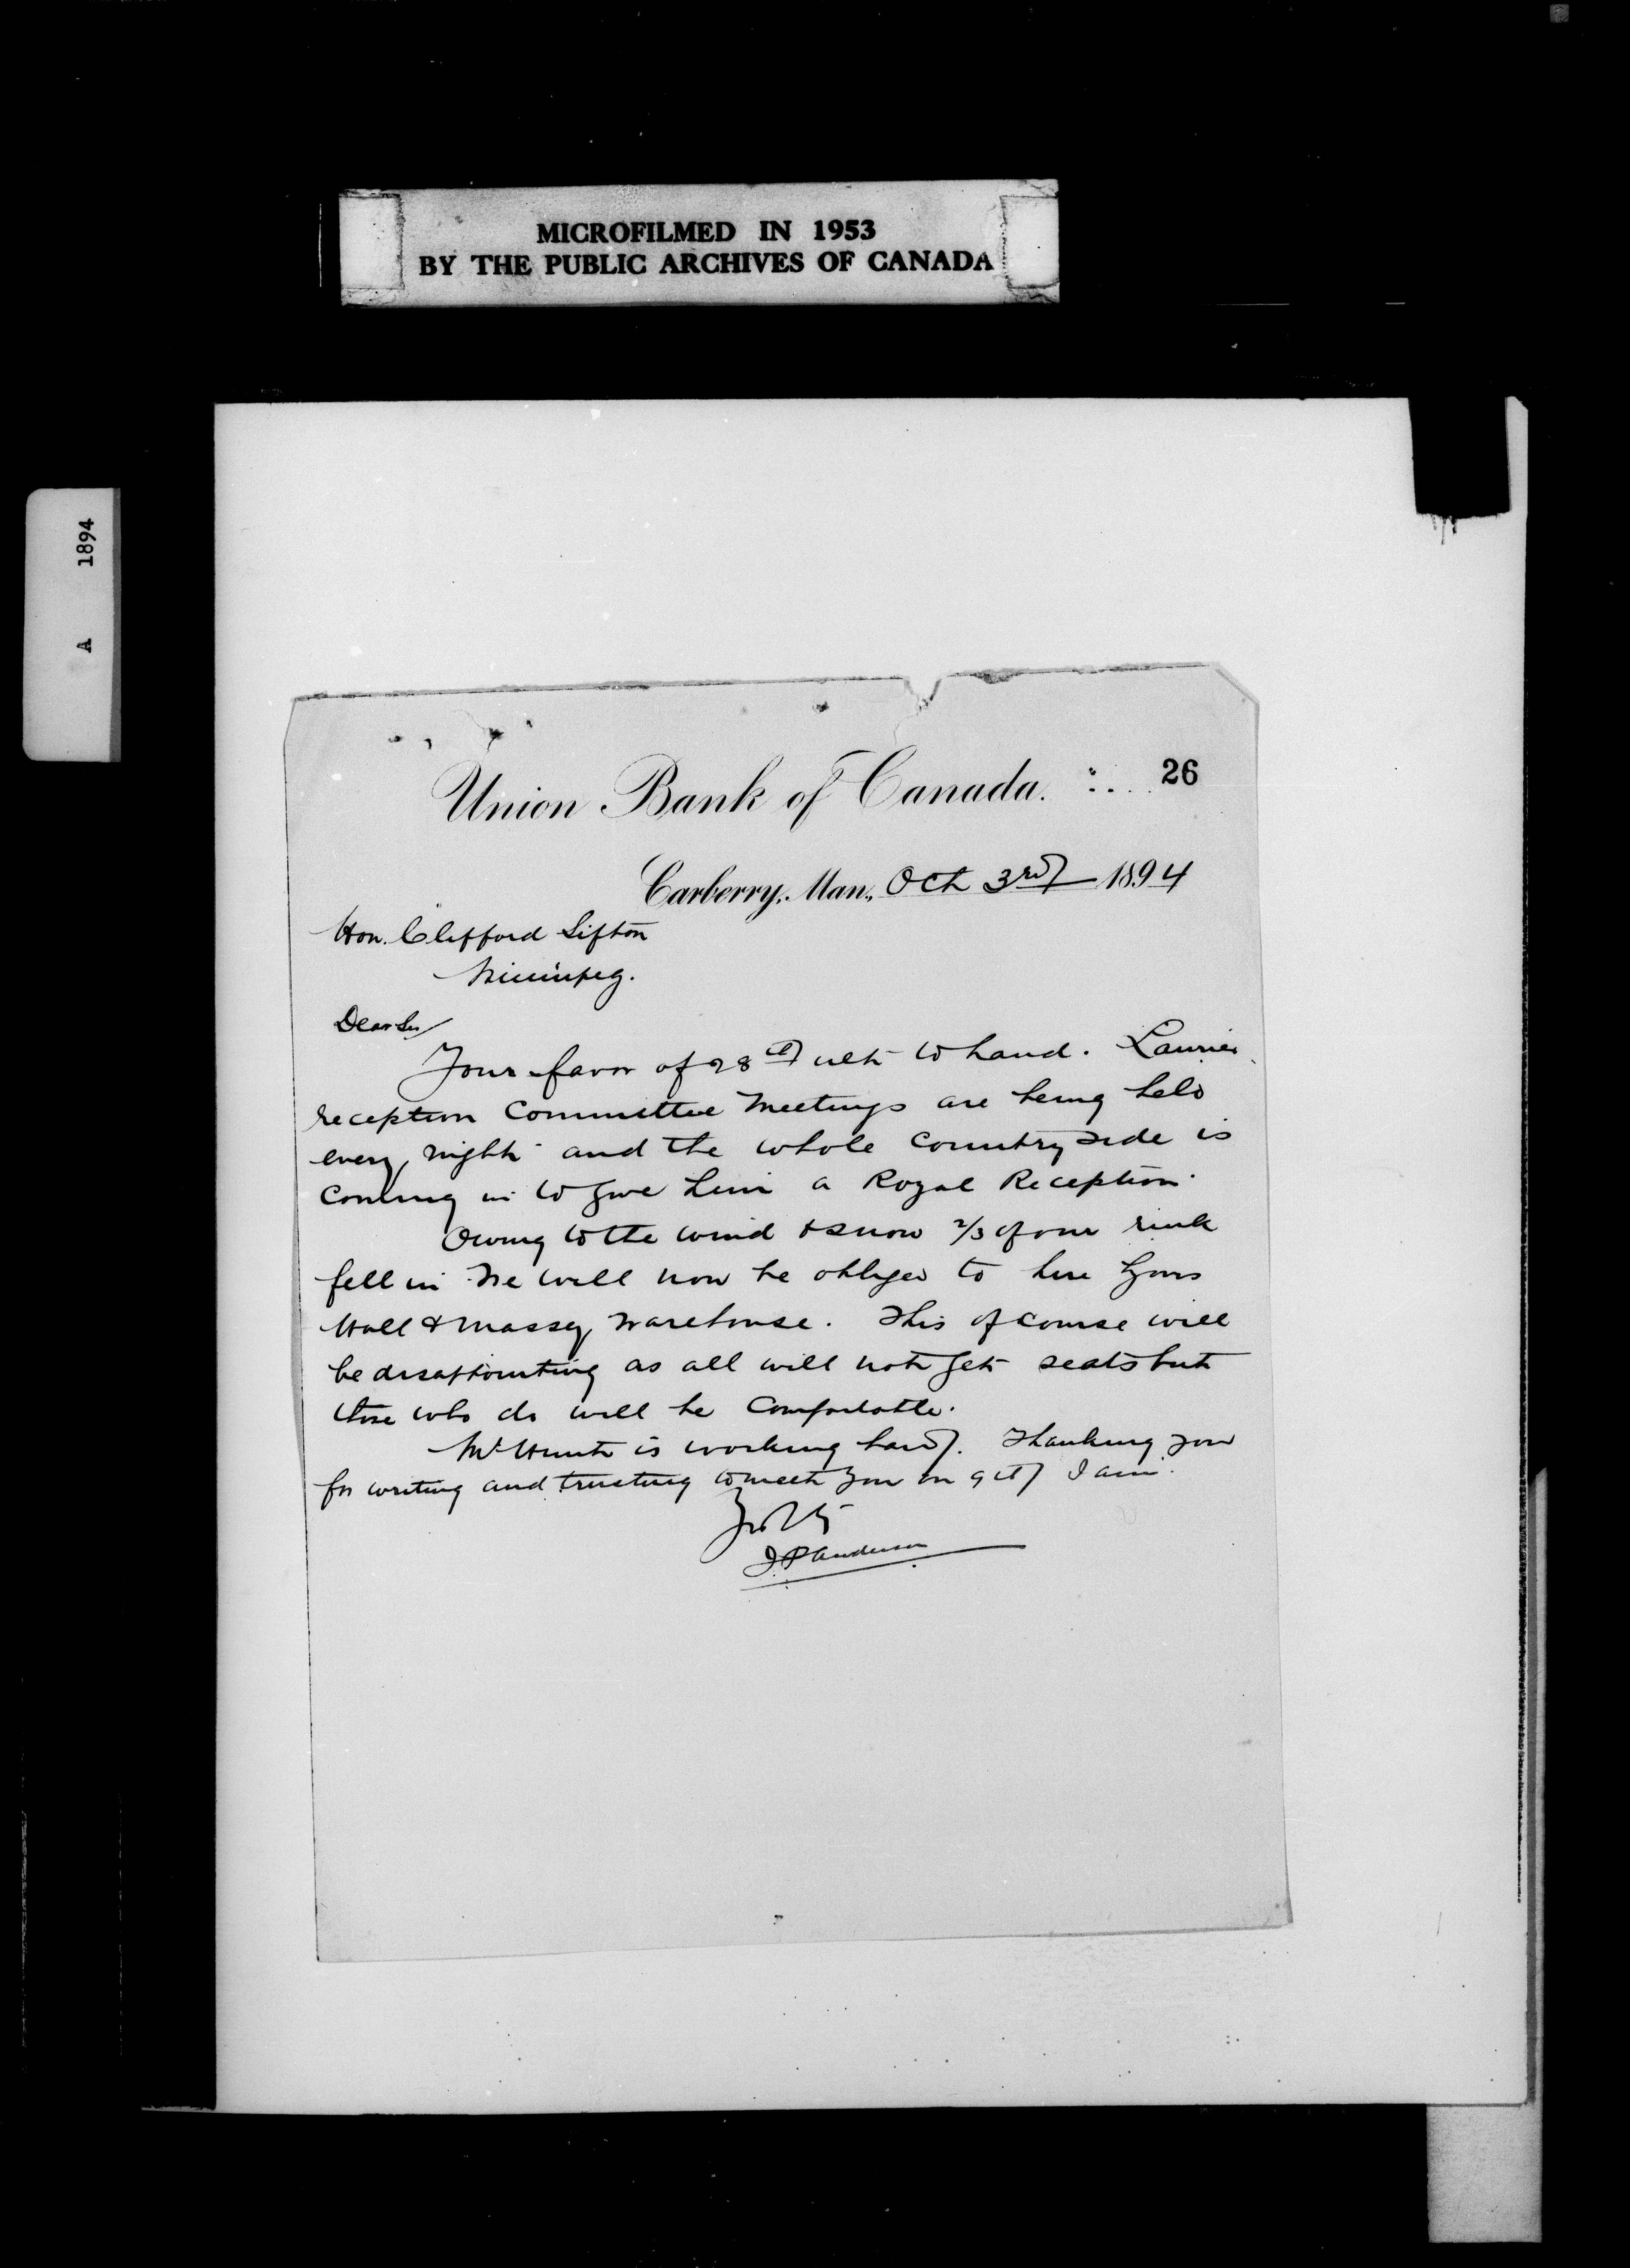 MICROFILMED IN 1953
BY THE PUBLIC ARCHIVES OF CANADA
A 1894
26
Union Bank of Canada.
Carberry, Man., Oct 3rd 1894
Hon. Clifford Sifton
Winnipeg.
Dear Sir/
Your favor of 28th ult to hand. Laurier
reception Committee Meetings are being held
every night and the whole Country side is
coming in to give him a Royal Reception.
Owing to the wind & snow 2/3 of our rink
fell in. We will now be obliged to hire
Hall & Massey Warehouse. This of course will
be disappointing as all will not get seats but
those who do will be Comfortable.
Mr Hunt is working hard. Thanking you
for writing and trusting to meet you on 9th I am.
J.P. Anderson